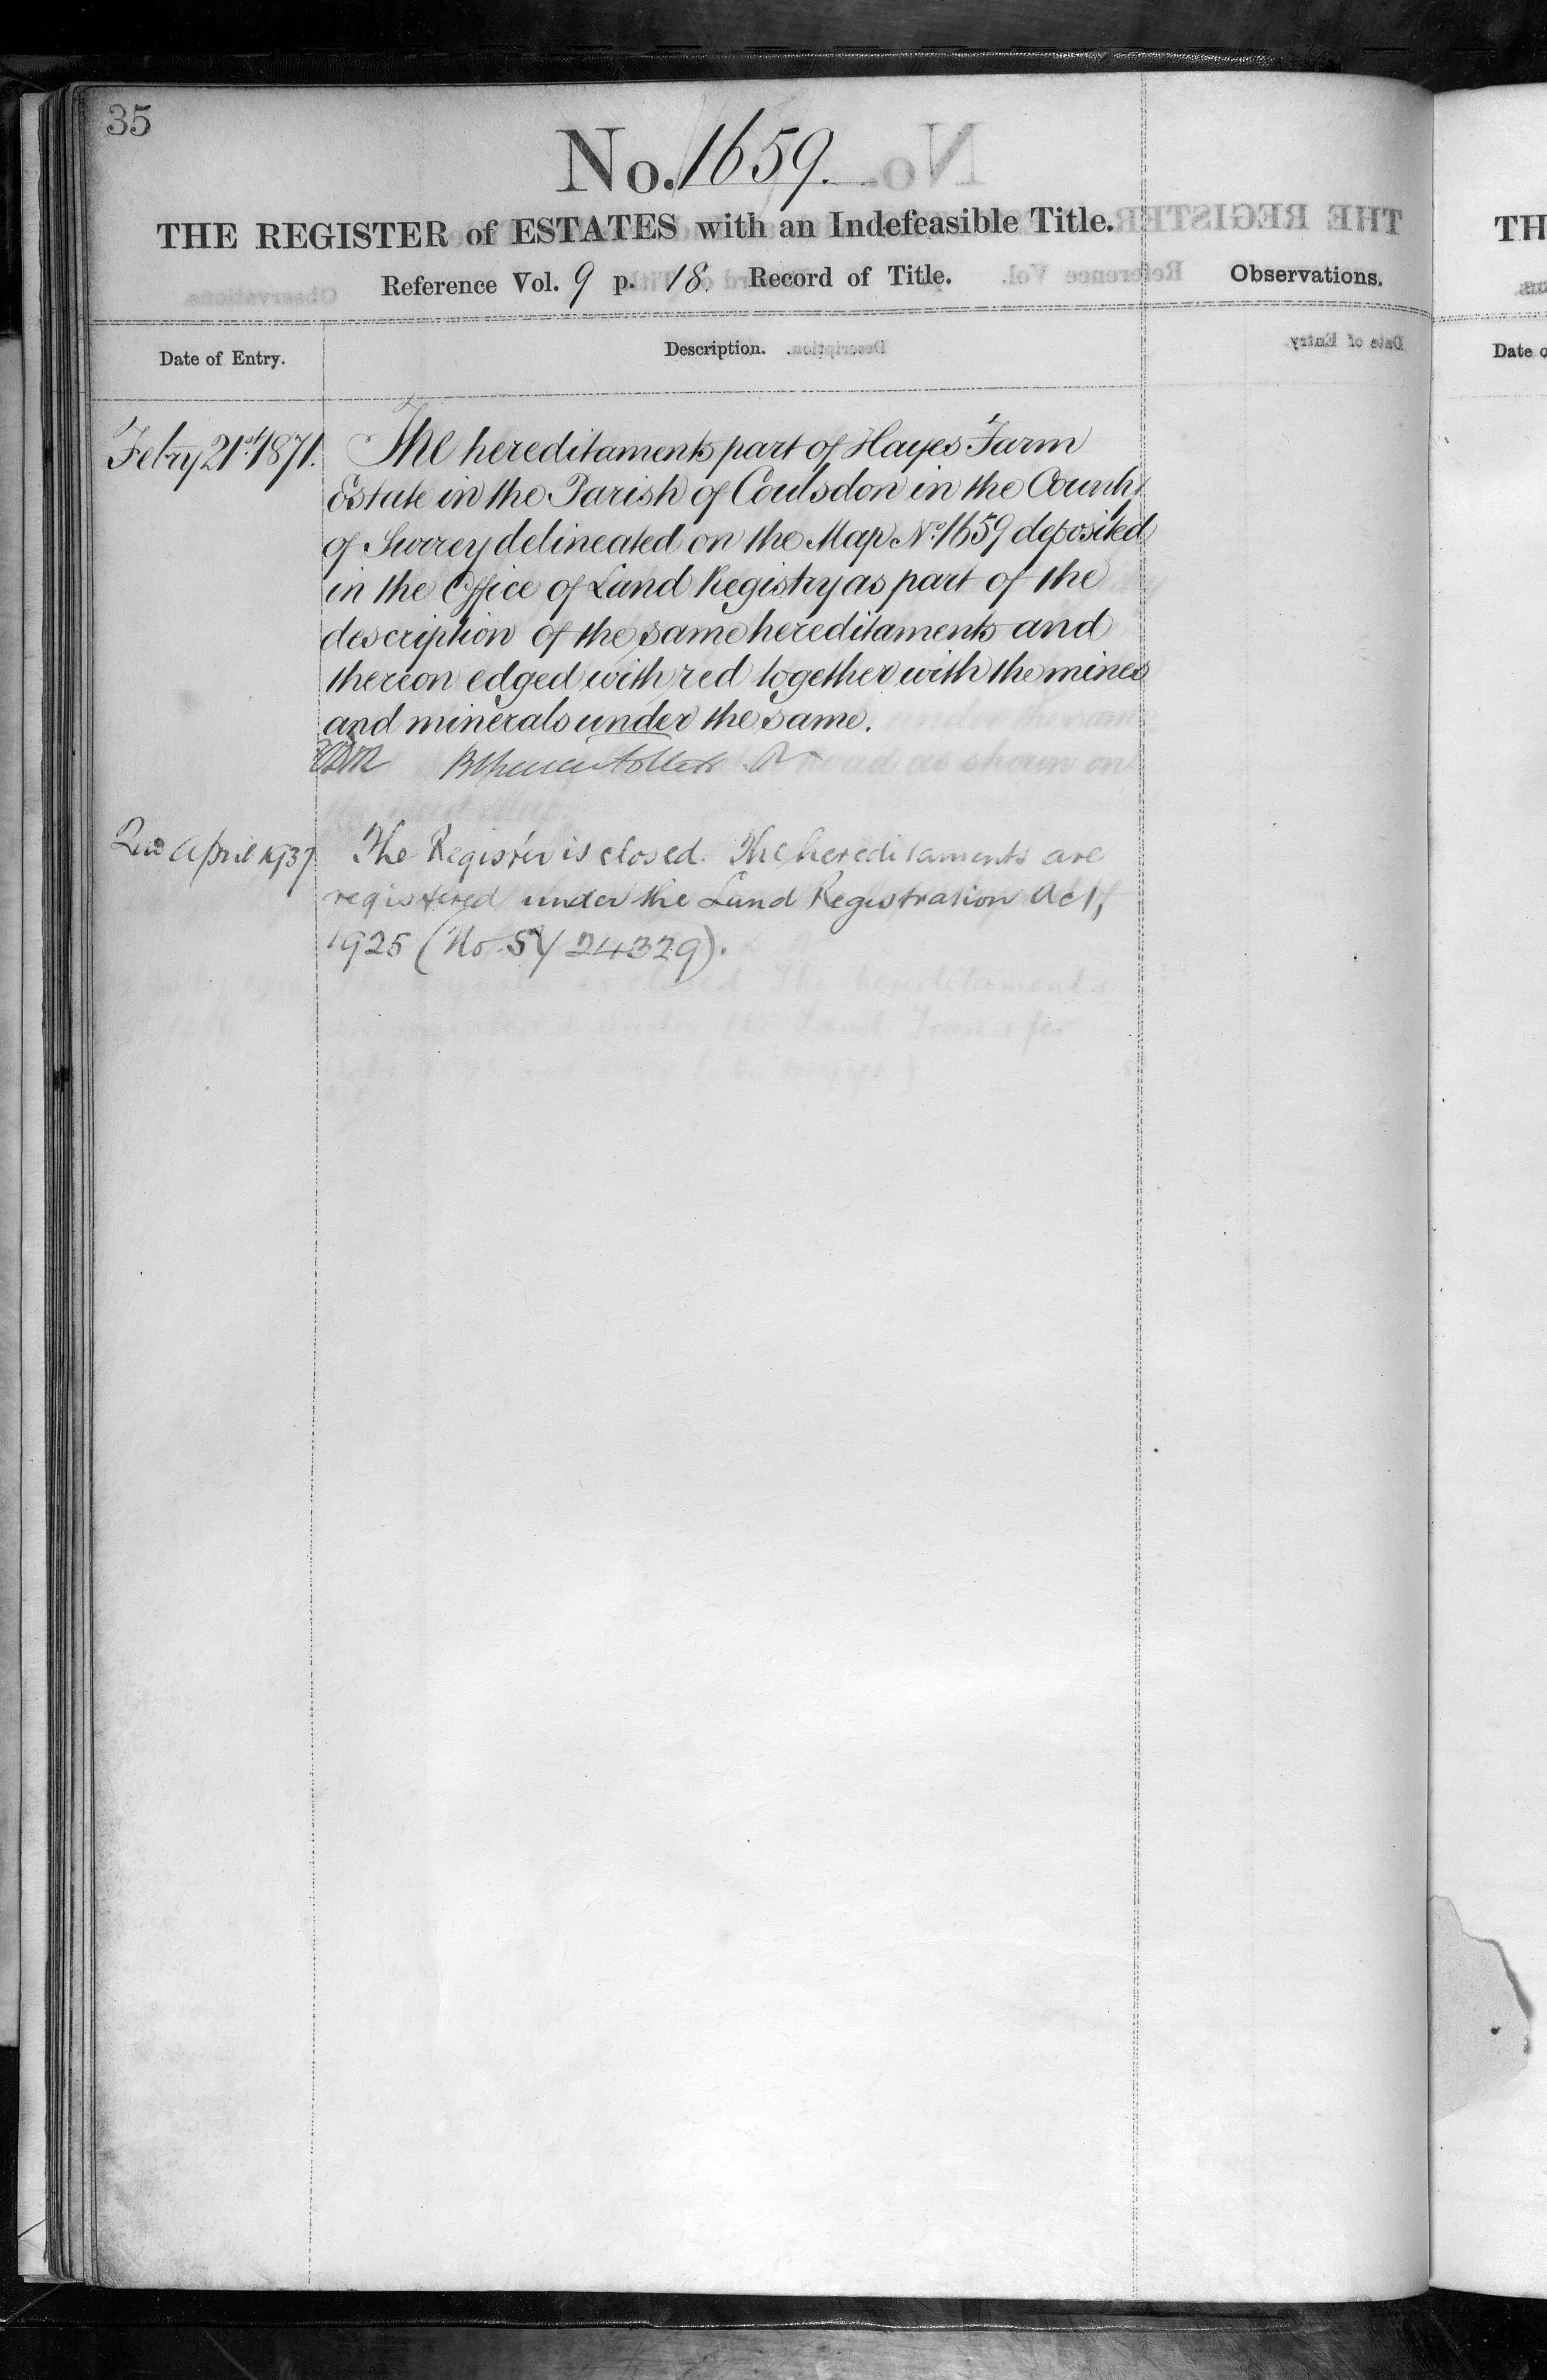 35
No. 1659.
THE REGISTER of ESTATES with an Indefeasible Title.
Reference Vol. 9 p. 18. Record of Title.
Observations.
Date of Entry.
Description.
Febry 21st 1871. The hereditaments part of Hayes Farm
Estate in the Parish of Coulsdon in the County
of Surrey delineated on the Map No. 1659 deposited
in the Office of Land Registry as part of the
description of the same hereditaments and
thereon edged with red together with the mines
and minerals under the same.
2nd April 1937. The Register is closed. The hereditaments are
registered under the Land Registration Act,
1925 (No. SY 24329).
TH
Date o